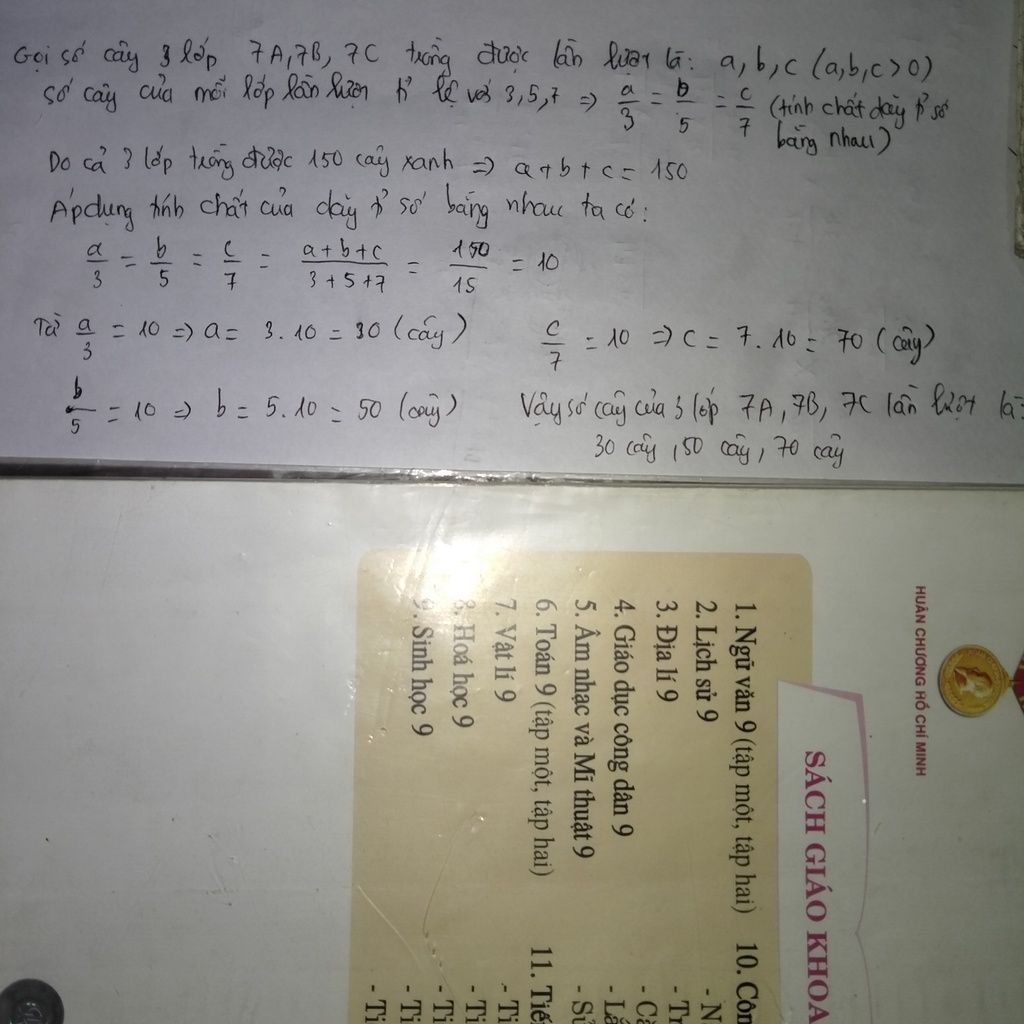 Gọi số cây 3 lớp 7A, 7B, 7C trồng được lần lượt là: a, b, c (a,b,c > 0)
số cây của mỗi lớp lần lượt tỉ lệ với 3, 5, 7 => a/3 = b/5 = c/7 (tính chất dãy tỉ số
bằng nhau)
Do cả 3 lớp trồng được 150 cây xanh => a + b + c = 150
Áp dụng tính chất của dãy tỉ số bằng nhau ta có:
a/3 = b/5 = c/7 = (a + b + c)/(3 + 5 + 7) = 150/15 = 10
Từ a/3 = 10 => a = 3 . 10 = 30 (cây)
c/7 = 10 => c = 7 . 10 = 70 (cây)
b/5 = 10 => b = 5 . 10 = 50 (cây)
Vậy số cây của 3 lớp 7A, 7B, 7C lần lượt là:
30 cây, 50 cây, 70 cây
HUÂN CHƯƠNG HỒ CHÍ MINH
SÁCH GIÁO KHOA
1. Ngữ văn 9 (tập một, tập hai)
2. Lịch sử 9
3. Địa lí 9
4. Giáo dục công dân 9
5. Âm nhạc và Mĩ thuật 9
6. Toán 9 (tập một, tập hai)
7. Vật lí 9
8. Hoá học 9
9. Sinh học 9
10.
11.